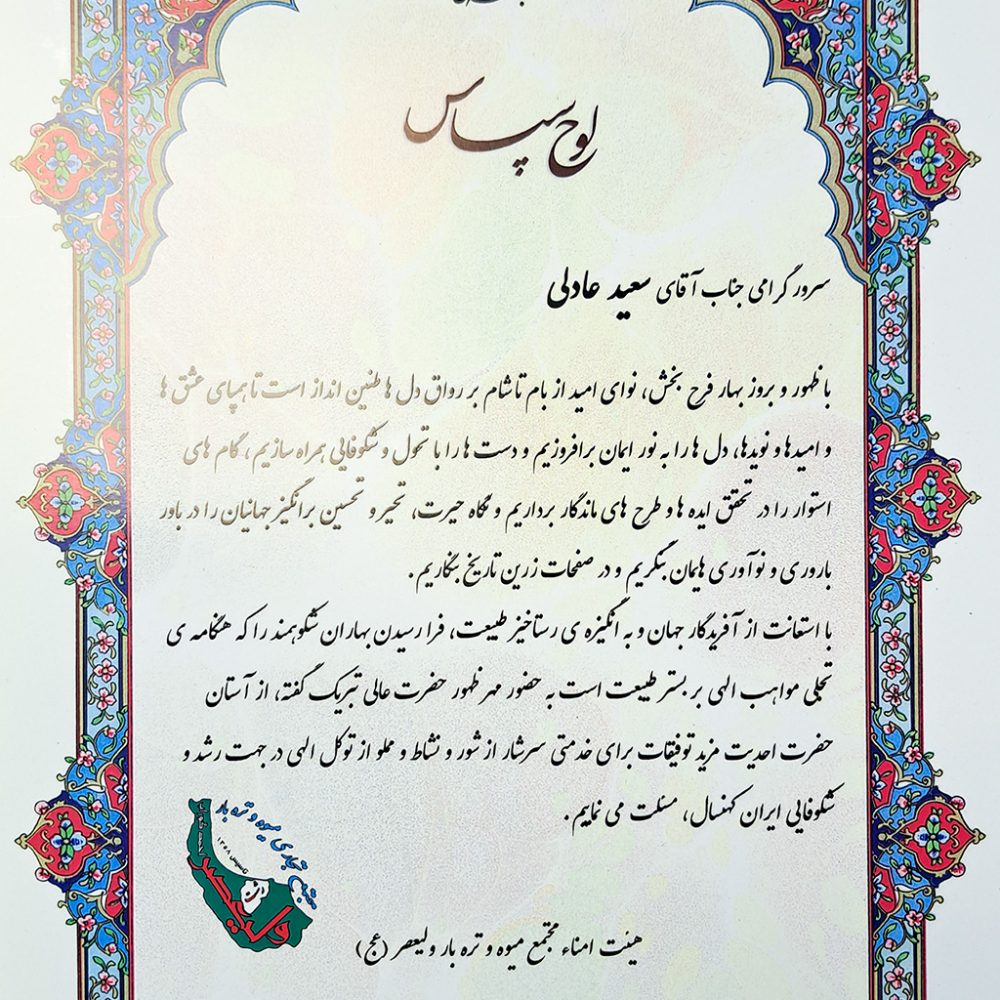 لوح سپاس
سرور گرامی جناب آقای سعید عادلی
با ظهور و بروز بهار فرح بخش، نوای امید از بام تا شام بر رواق دل ها طنین انداز است تا همپای عشق ها
و امیدها و نویدها، دل ها را به نور ایمان برافروزیم و دست ها را با تحول و شکوفایی همراه سازیم، گام های
استوار را در تحقق ایده ها و طرح های ماندگار برداریم و نگاه حیرت، تحیر و تحسین برانگیز جهانیان را در باور
باروری و نوآوری هامان بنگریم و در صفحات زرین تاریخ بنگاریم.
با استعانت از آفریدگار جهان و به انگیزه ی رستاخیز طبیعت، فرا رسیدن بهاران شکوهمند را که هنگامه ی
تجلی مواهب الهی بر بستر طبیعت است به حضور مهر ظهور حضرت عالی تبریک گفته، از آستان
حضرت احدیت مزید توفیقات برای خدمتی سرشار از شور و نشاط و مملو از توکل الهی در جهت رشد و
شکوفایی ایران کهنسال، مسئلت می نماییم.
مجتمع تجاری میوه و تره بار
تاسیس ۱۳۶۸
ولیعصر
هیئت امناء مجتمع میوه و تره بار ولیعصر (عج)